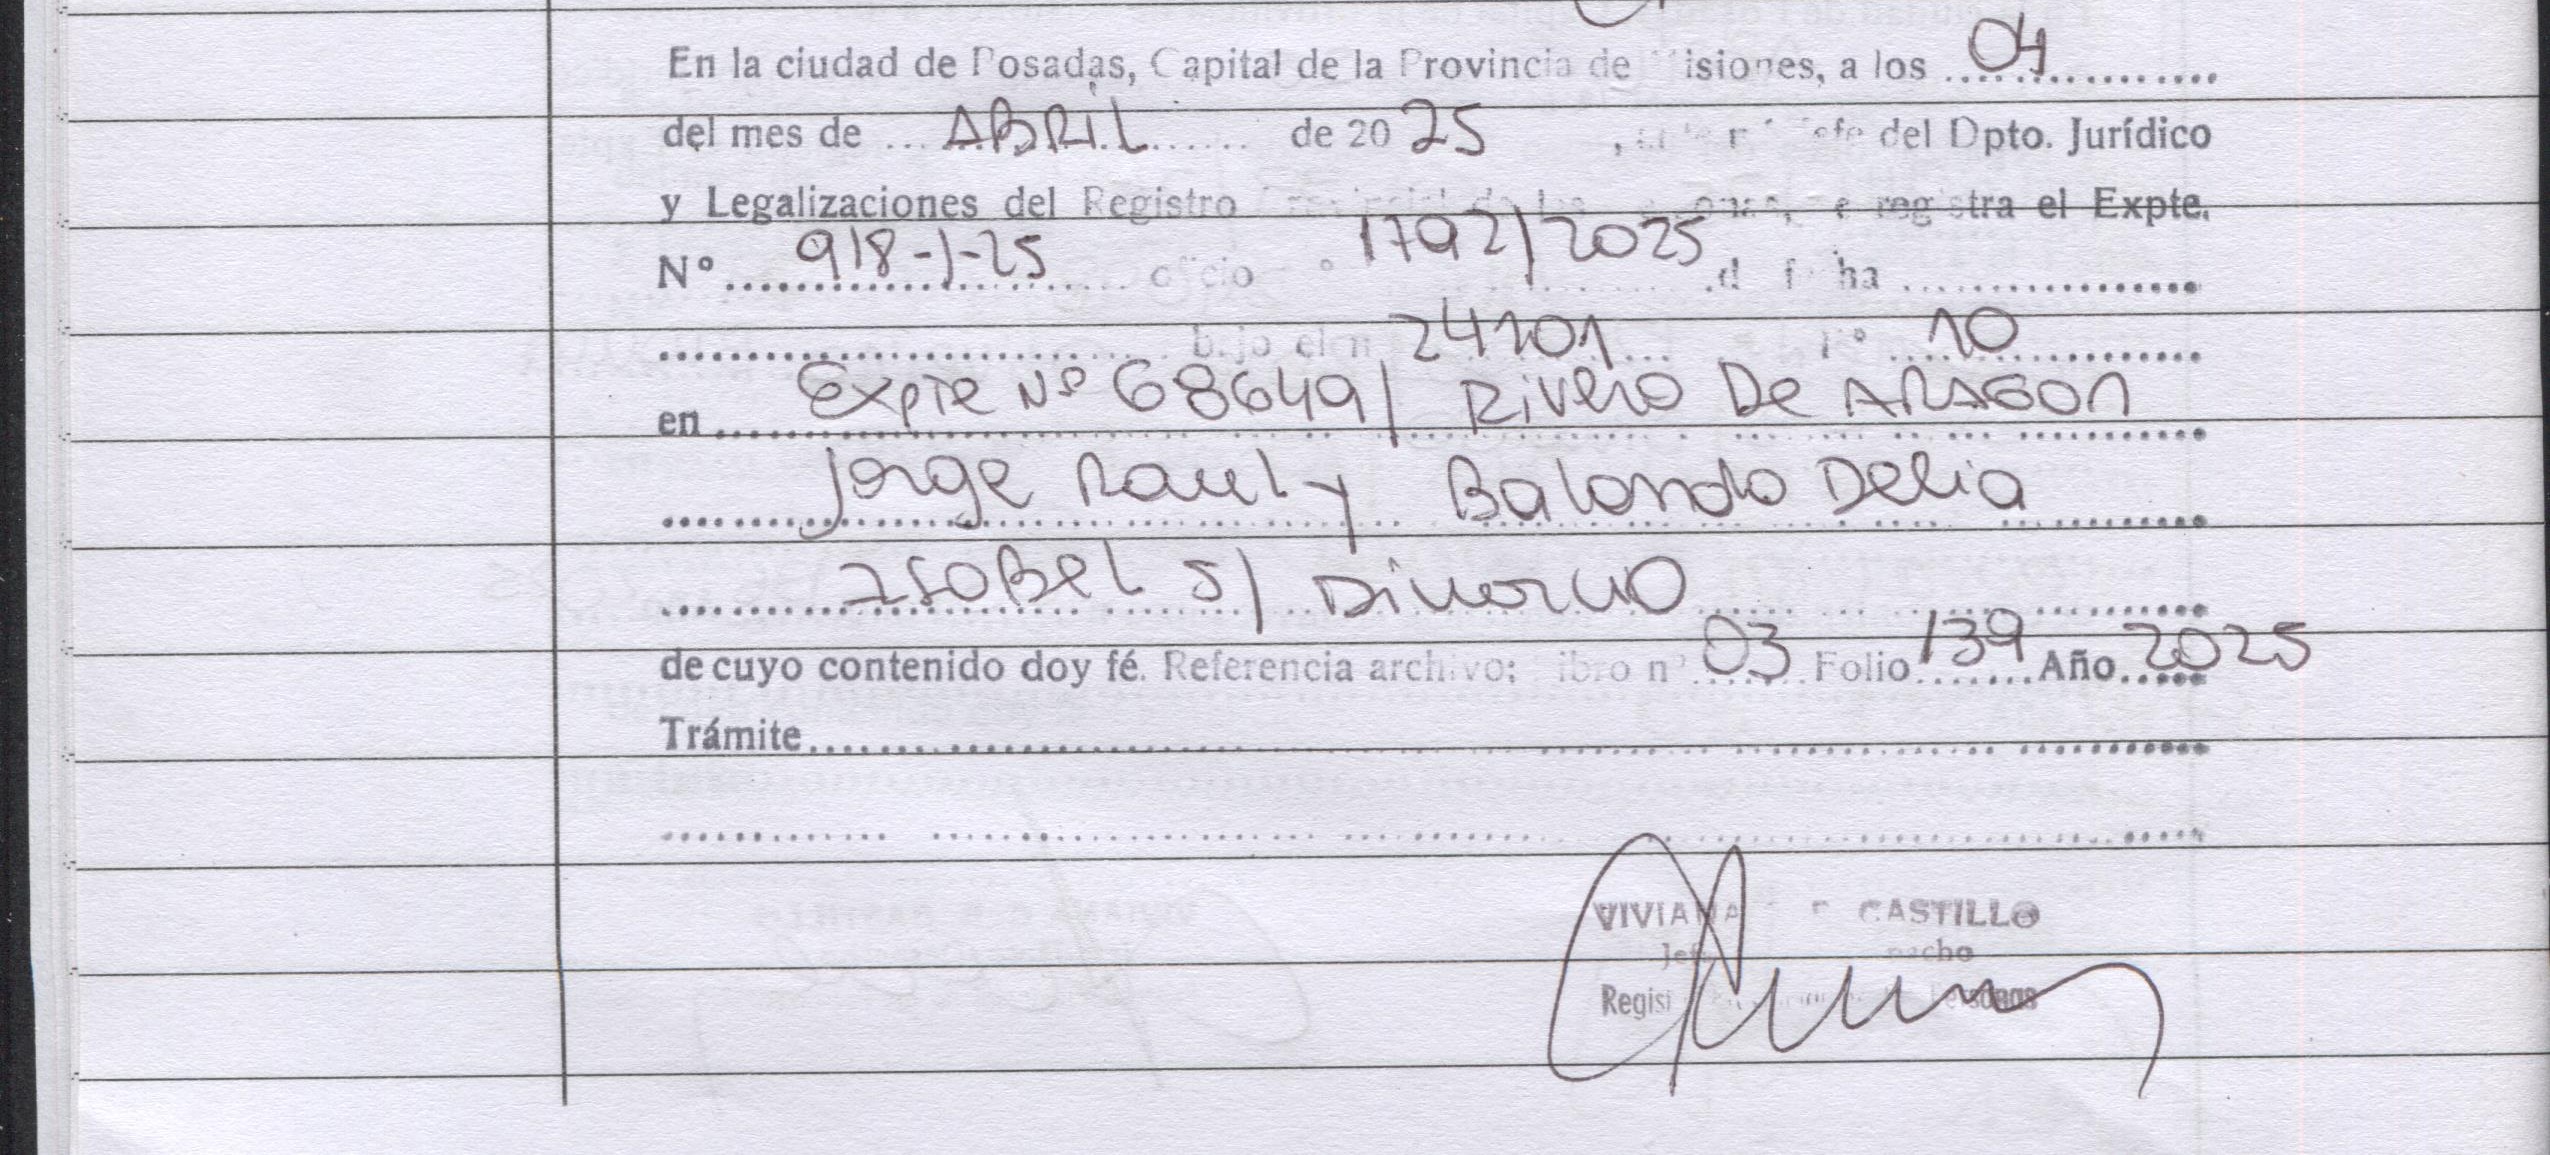 En la ciudad de Posadas, Capital de la Provincia de Misiones, a los 04
del mes de ABRIL de 2025, del Dpto. Jurídico
y Legalizaciones del Registro registra el Expte.
Nº 918-J-25 oficio 1792/2025 fecha
bajo el nº 24101 Nº 10
en Expte Nº 68649/ Rivero De ARAGON
Jorge Raul y Balondo Delia
ISABEL s/ Divorcio
de cuyo contenido doy fé. Referencia archivo; libro nº 03 Folio 139 Año 2025
Trámite
VIVIANA CASTILLO
Personas